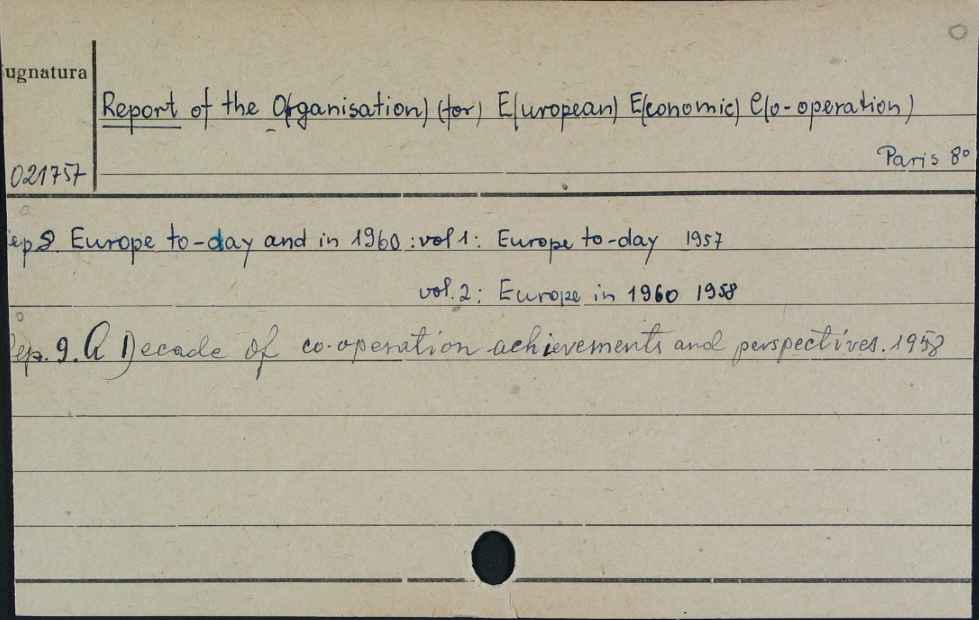 ugnatura
Report of the O(rganisation) (for) E(uropean) E(conomic) C(o-operation)
Paris 8°
021757
ep 8 Europe to-day and in 1960: vol 1: Europe to-day 1957
vol. 2: Europe in 1960 1958
ep. 9. A Decade of co-operation achievements and perspectives. 1958